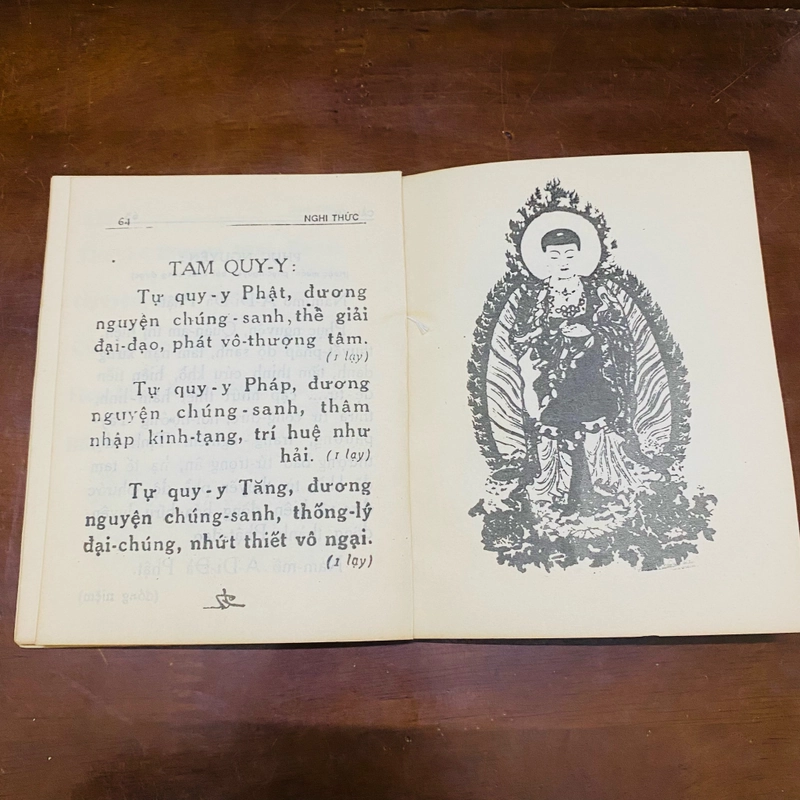 64
NGHI THỨC
TAM QUY-Y:
Tự quy-y Phật, đương
nguyện chúng-sanh, thể giải
đại-đạo, phát vô-thượng tâm.
(1 lạy)
Tự quy-y Pháp, đương
nguyện chúng-sanh, thâm
nhập kinh-tạng, trí huệ như
hải. (1 lạy)
Tự quy-y Tăng, đương
nguyện chúng-sanh, thống-lý
đại-chúng, nhứt thiết vô ngại.
(1 lạy)